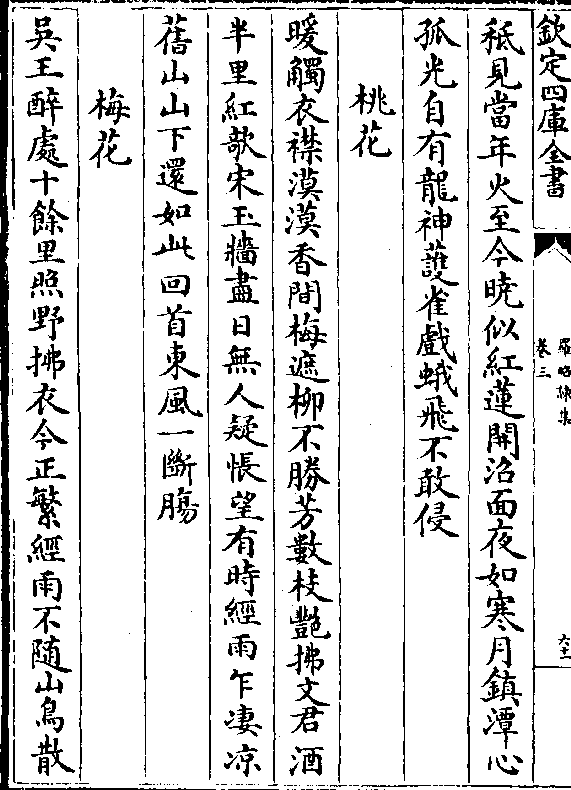 欽定四庫全書
羅昭諫集
卷三
秪見當年火至今曉似紅蓮開沼面夜如寒月鎮潭心
孤光自有龍神護雀戲蛾飛不敢侵
桃花
暖觸衣襟漠漠香間梅遮柳不勝芳數枝艷拂文君酒
半里紅欹宋玉牆盡日無人疑悵望有時經雨乍凄凉
舊山山下還如此回首東風一斷腸
梅花
吳王醉處十餘里照野拂衣今正繁經雨不隨山鳥散